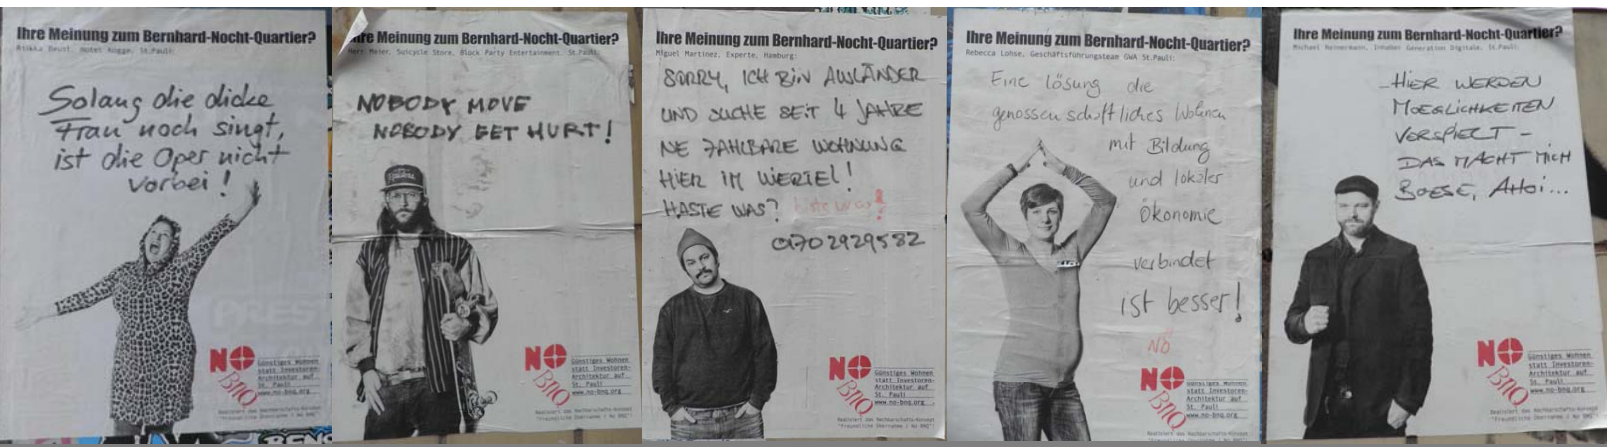 Ihre Meinung zum Bernhard-Nocht-Quartier?
Hotel Rogge, St.Pauli:
Solang die dicke
Frau noch singt,
ist die Oper nicht
vorbei!
NO
BNQ
Günstiges Wohnen
statt Investoren-
Architektur auf
St. Pauli
www.no-bnq.org
Realisiert das Nachbarschafts-Konzept
"Freundliche Übernahme / No BNQ"!
Ihre Meinung zum Bernhard-Nocht-Quartier?
Herr Meier, Suicycle Store, Block Party Entertainment, St.Pauli:
NOBODY MOVE
NOBODY GET HURT!
NO
BNQ
Günstiges Wohnen
statt Investoren-
Architektur auf
St. Pauli
www.no-bnq.org
Realisiert das Nachbarschafts-Konzept
"Freundliche Übernahme / No BNQ"!
Ihre Meinung zum Bernhard-Nocht-Quartier?
Miguel Martinez, Experte, Hamburg:
SORRY, ICH BIN AUSLÄNDER
UND SUCHE SEIT 4 JAHRE
NE ZAHLBARE WOHNUNG
HIER IM VIERTEL!
HASTE WAS? bitte was?
01702929582
NO
BNQ
Günstiges Wohnen
statt Investoren-
Architektur auf
St. Pauli
www.no-bnq.org
Realisiert das Nachbarschafts-Konzept
"Freundliche Übernahme / No BNQ"!
Ihre Meinung zum Bernhard-Nocht-Quartier?
Rebecca Lohse, Geschäftsführungsteam GWA St.Pauli:
Eine Lösung die
genossenschaftliches Wohnen
mit Bildung
und lokaler
Ökonomie
verbindet
ist besser!
NÖ
NO
BNQ
Günstiges Wohnen
statt Investoren-
Architektur auf
St. Pauli
www.no-bnq.org
Realisiert das Nachbarschafts-Konzept
"Freundliche Übernahme / No BNQ"!
Ihre Meinung zum Bernhard-Nocht-Quartier?
Michael Reinermann, Inhaber Generation Digitale, St.Pauli:
HIER WERDEN
MOEGLICHKEITEN
VERSPIELT -
DAS MACHT MICH
BOESE, AHOI...
NO
BNQ
Günstiges Wohnen
statt Investoren-
Architektur auf
St. Pauli
www.no-bnq.org
Realisiert das Nachbarschafts-Konzept
"Freundliche Übernahme / No BNQ"!